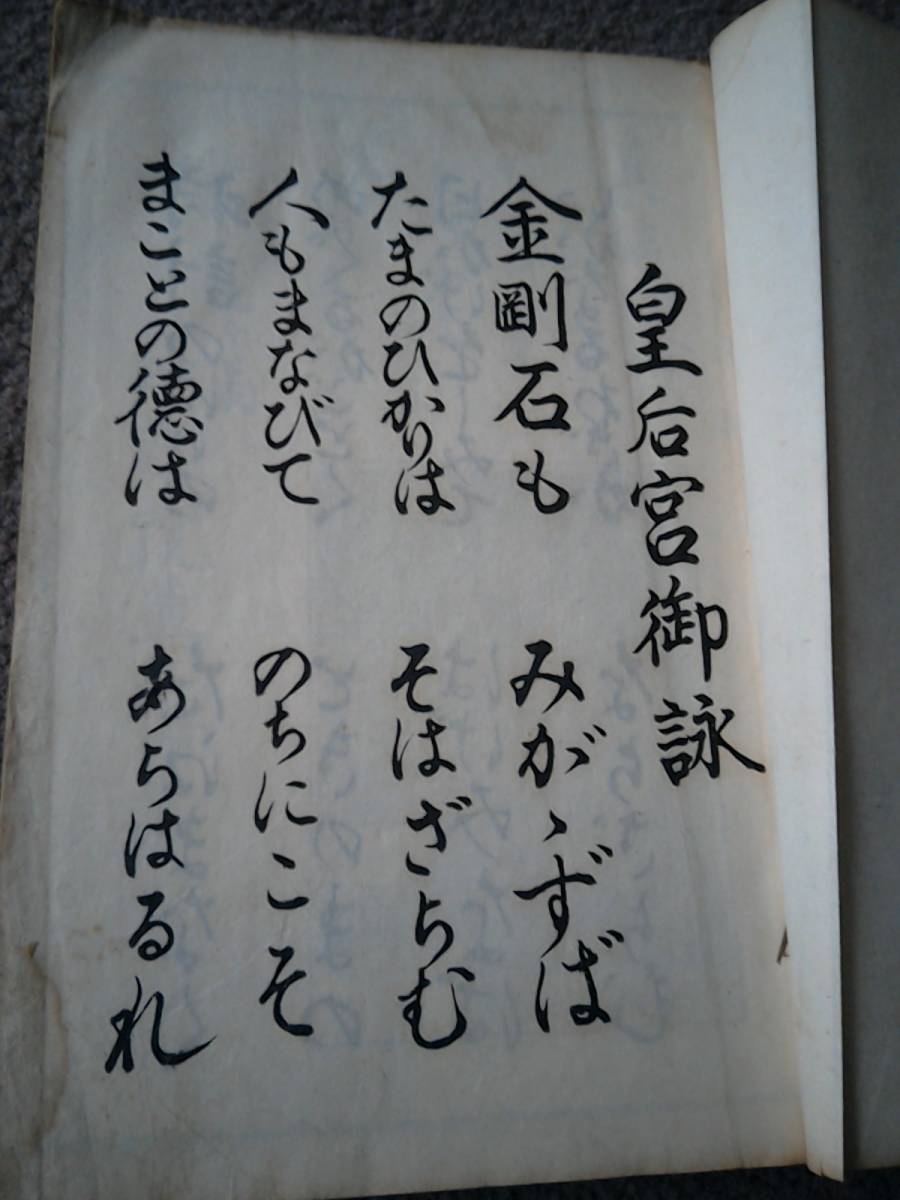 皇后宮御詠
金剛石も　みがゝずば
たまのひかりは　そはざらむ
人もまなびて　のちにこそ
まことの徳は　あらはるれ